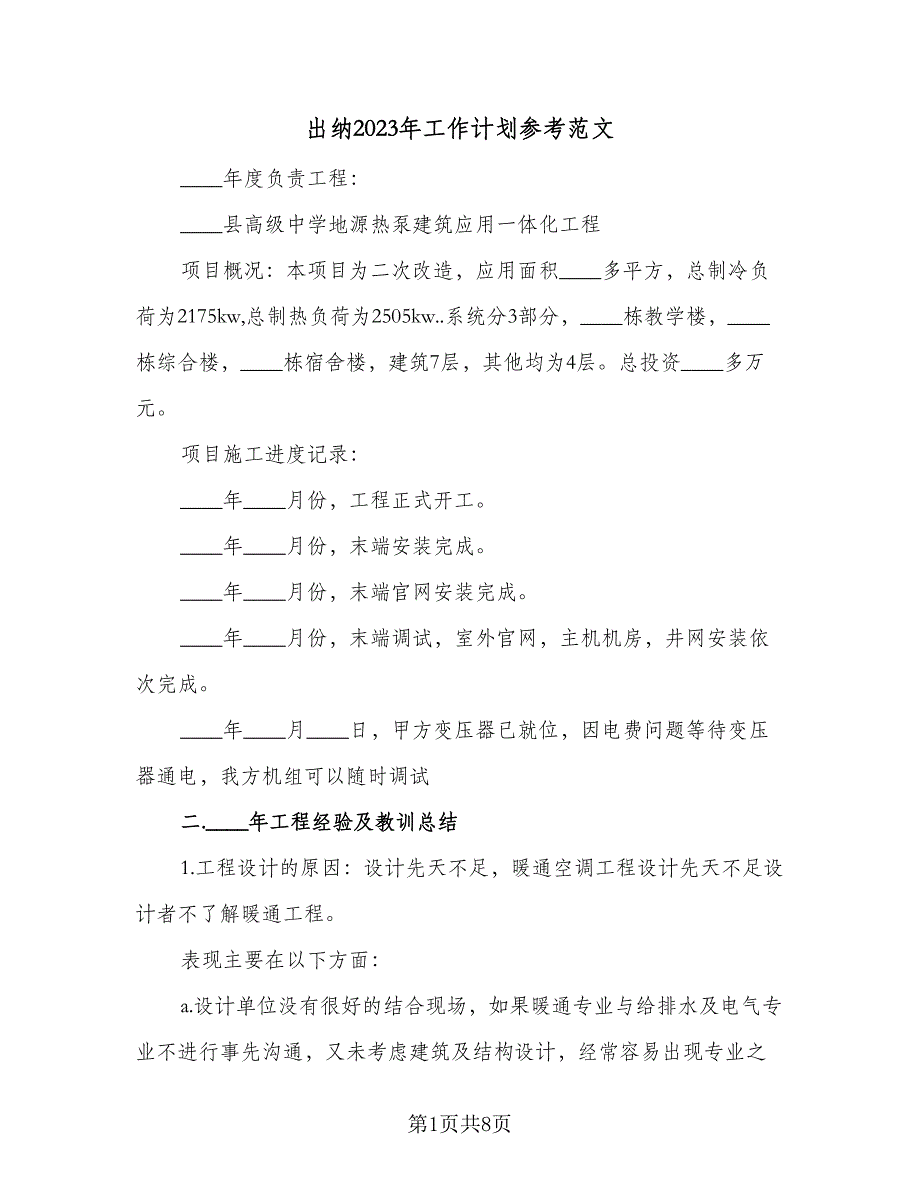 出纳2023年工作计划参考范文
____年度负责工程：
____县高级中学地源热泵建筑应用一体化工程
项目概况：本项目为二次改造，应用面积____多平方，总制冷负
荷为2175kw,总制热负荷为2505kw..系统分3部分，____栋教学楼，____
栋综合楼，____栋宿舍楼，建筑7层，其他均为4层。总投资____多万
元。
项目施工进度记录：
____年____月份，工程正式开工。
____年____月份，末端安装完成。
____年____月份，末端官网安装完成。
____年____月份，末端调试，室外官网，主机机房，井网安装依
次完成。
____年____月____日，甲方变压器已就位，因电费问题等待变压
器通电，我方机组可以随时调试
二.____年工程经验及教训总结
1.工程设计的原因：设计先天不足，暖通空调工程设计先天不足设
计者不了解暖通工程。
表现主要在以下方面：
a.设计单位没有很好的结合现场，如果暖通专业与给排水及电气专
业不进行事先沟通，又未考虑建筑及结构设计，经常容易出现专业之
第1页共8页